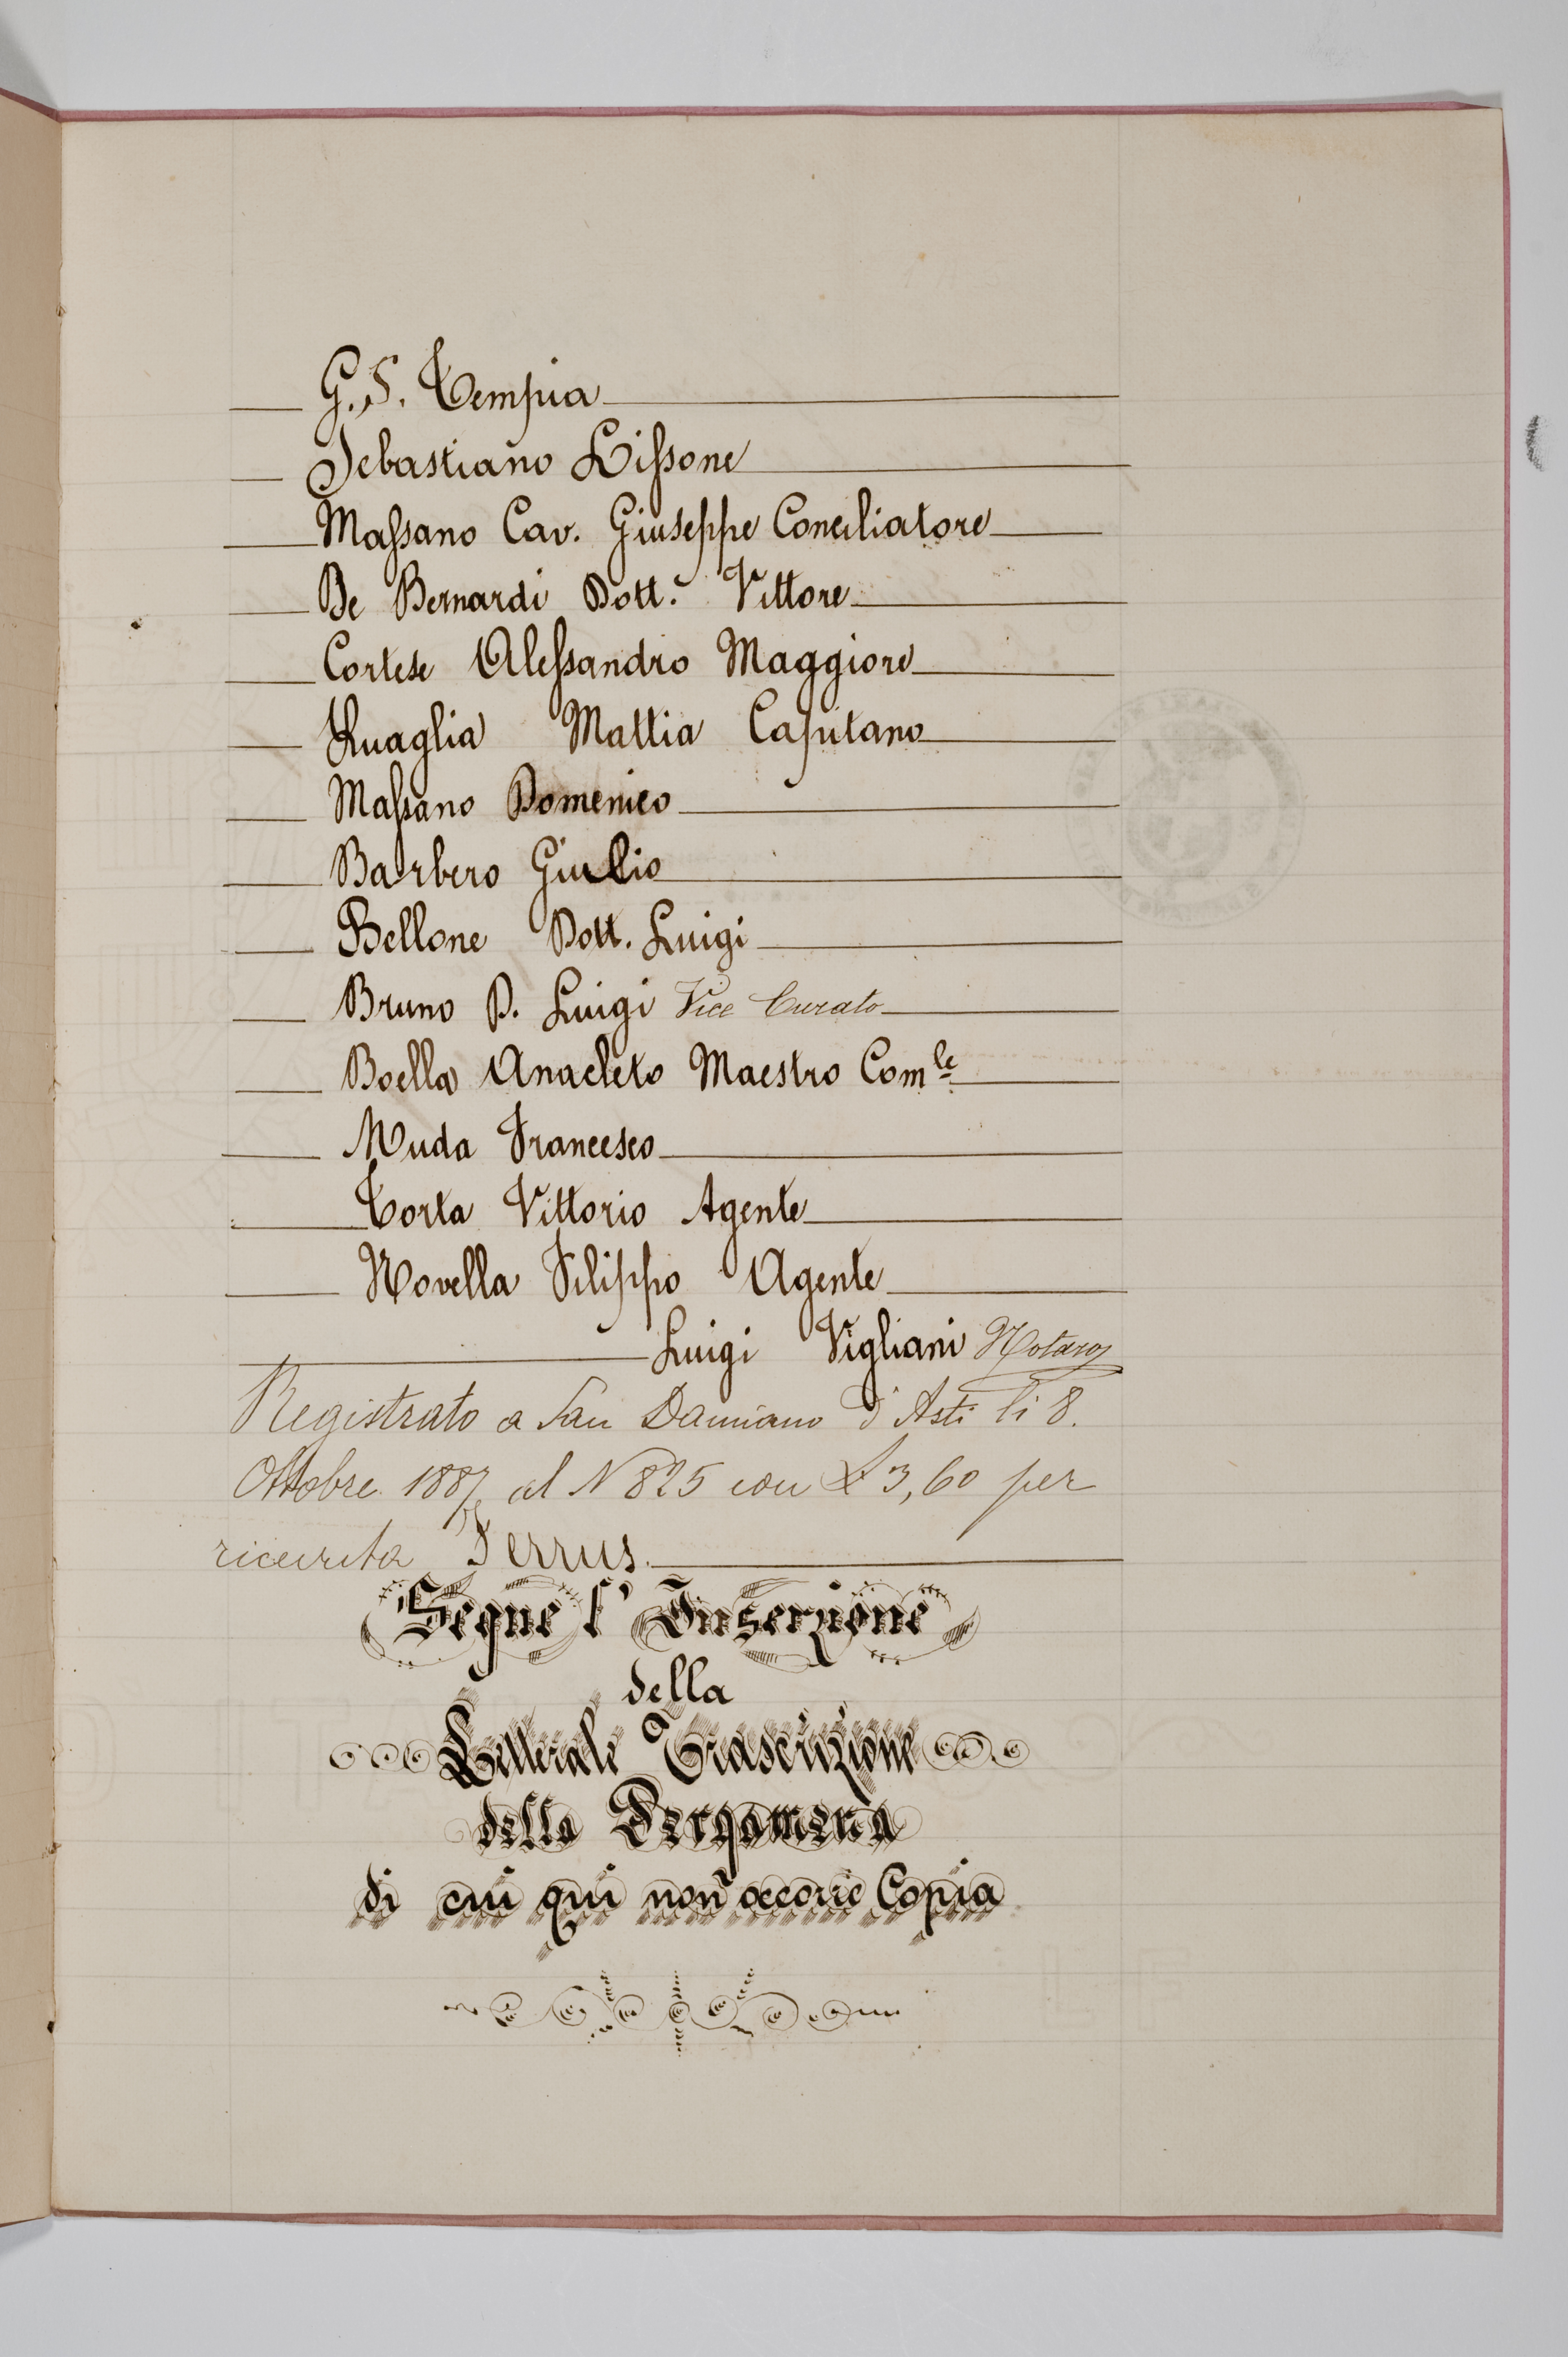 G. S. Tempia
Sebastiano Lissone
Massano Cav. Giuseppe Conciliatore
De Bernardi Dott. Vittore
Cortese Alessandro Maggiore
Quaglia Mattia Capitano
Massano Domenico
Barbero Giulio
Bellone Dott. Luigi
Bruno D. Luigi Vice Curato
Boella Anacleto Maestro Comle
Muda Francesco
Torta Vittorio Agente
Novella Filippo Agente
Luigi Vigliani Notaro
Registrato a San Damiano d'Asti li 8.
Ottobre 1887 al N 825 con £ 3,60 per
ricevuta Ferrus.
Segue l'Inserzione
della
Letterale Trascrizione
della Pergamena
di cui qui non occorre Copia